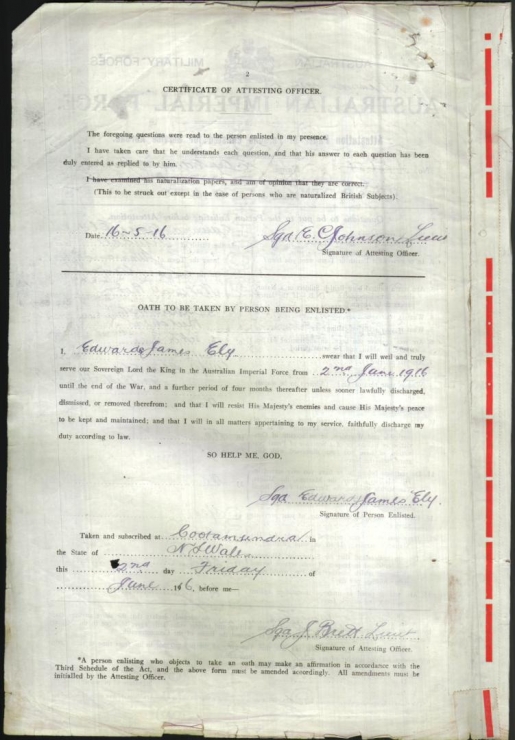 2
CERTIFICATE OF ATTESTING OFFICER.
The foregoing questions were read to the person enlisted in my presence.
I have taken care that he understands each question, and that his answer to each question has been
duly entered as replied to by him.
I have examined his naturalization papers, and am of opinion that they are correct.
(This to be struck out except in the case of persons who are naturalized British Subjects).
Date 16-5-16 Sgd E. C Johnson, Lieut
Signature of Attesting Officer.
OATH TO BE TAKEN BY PERSON BEING ENLISTED.*
I, Edward James Ely swear that I will well and truly
serve our Sovereign Lord the King in the Australian Imperial Force from 2nd June 1916
until the end of the War, and a further period of four months thereafter unless sooner lawfully discharged,
dismissed, or removed therefrom; and that I will resist His Majesty's enemies and cause His Majesty's peace
to be kept and maintained; and that I will in all matters appertaining to my service, faithfully discharge my
duty according to law.
SO HELP ME, GOD.
Sgd Edward James Ely.
Signature of Person Enlisted.
Taken and subscribed at Cootamundra in
the State of N S Wales
this 2nd day Friday of
June 1916, before me—
Sgd J Brett Lieut
Signature of Attesting Officer.
*A person enlisting who objects to take an oath may make an affirmation in accordance with the
Third Schedule of the Act, and the above form must be amended accordingly. All amendments must be
initialled by the Attesting Officer.